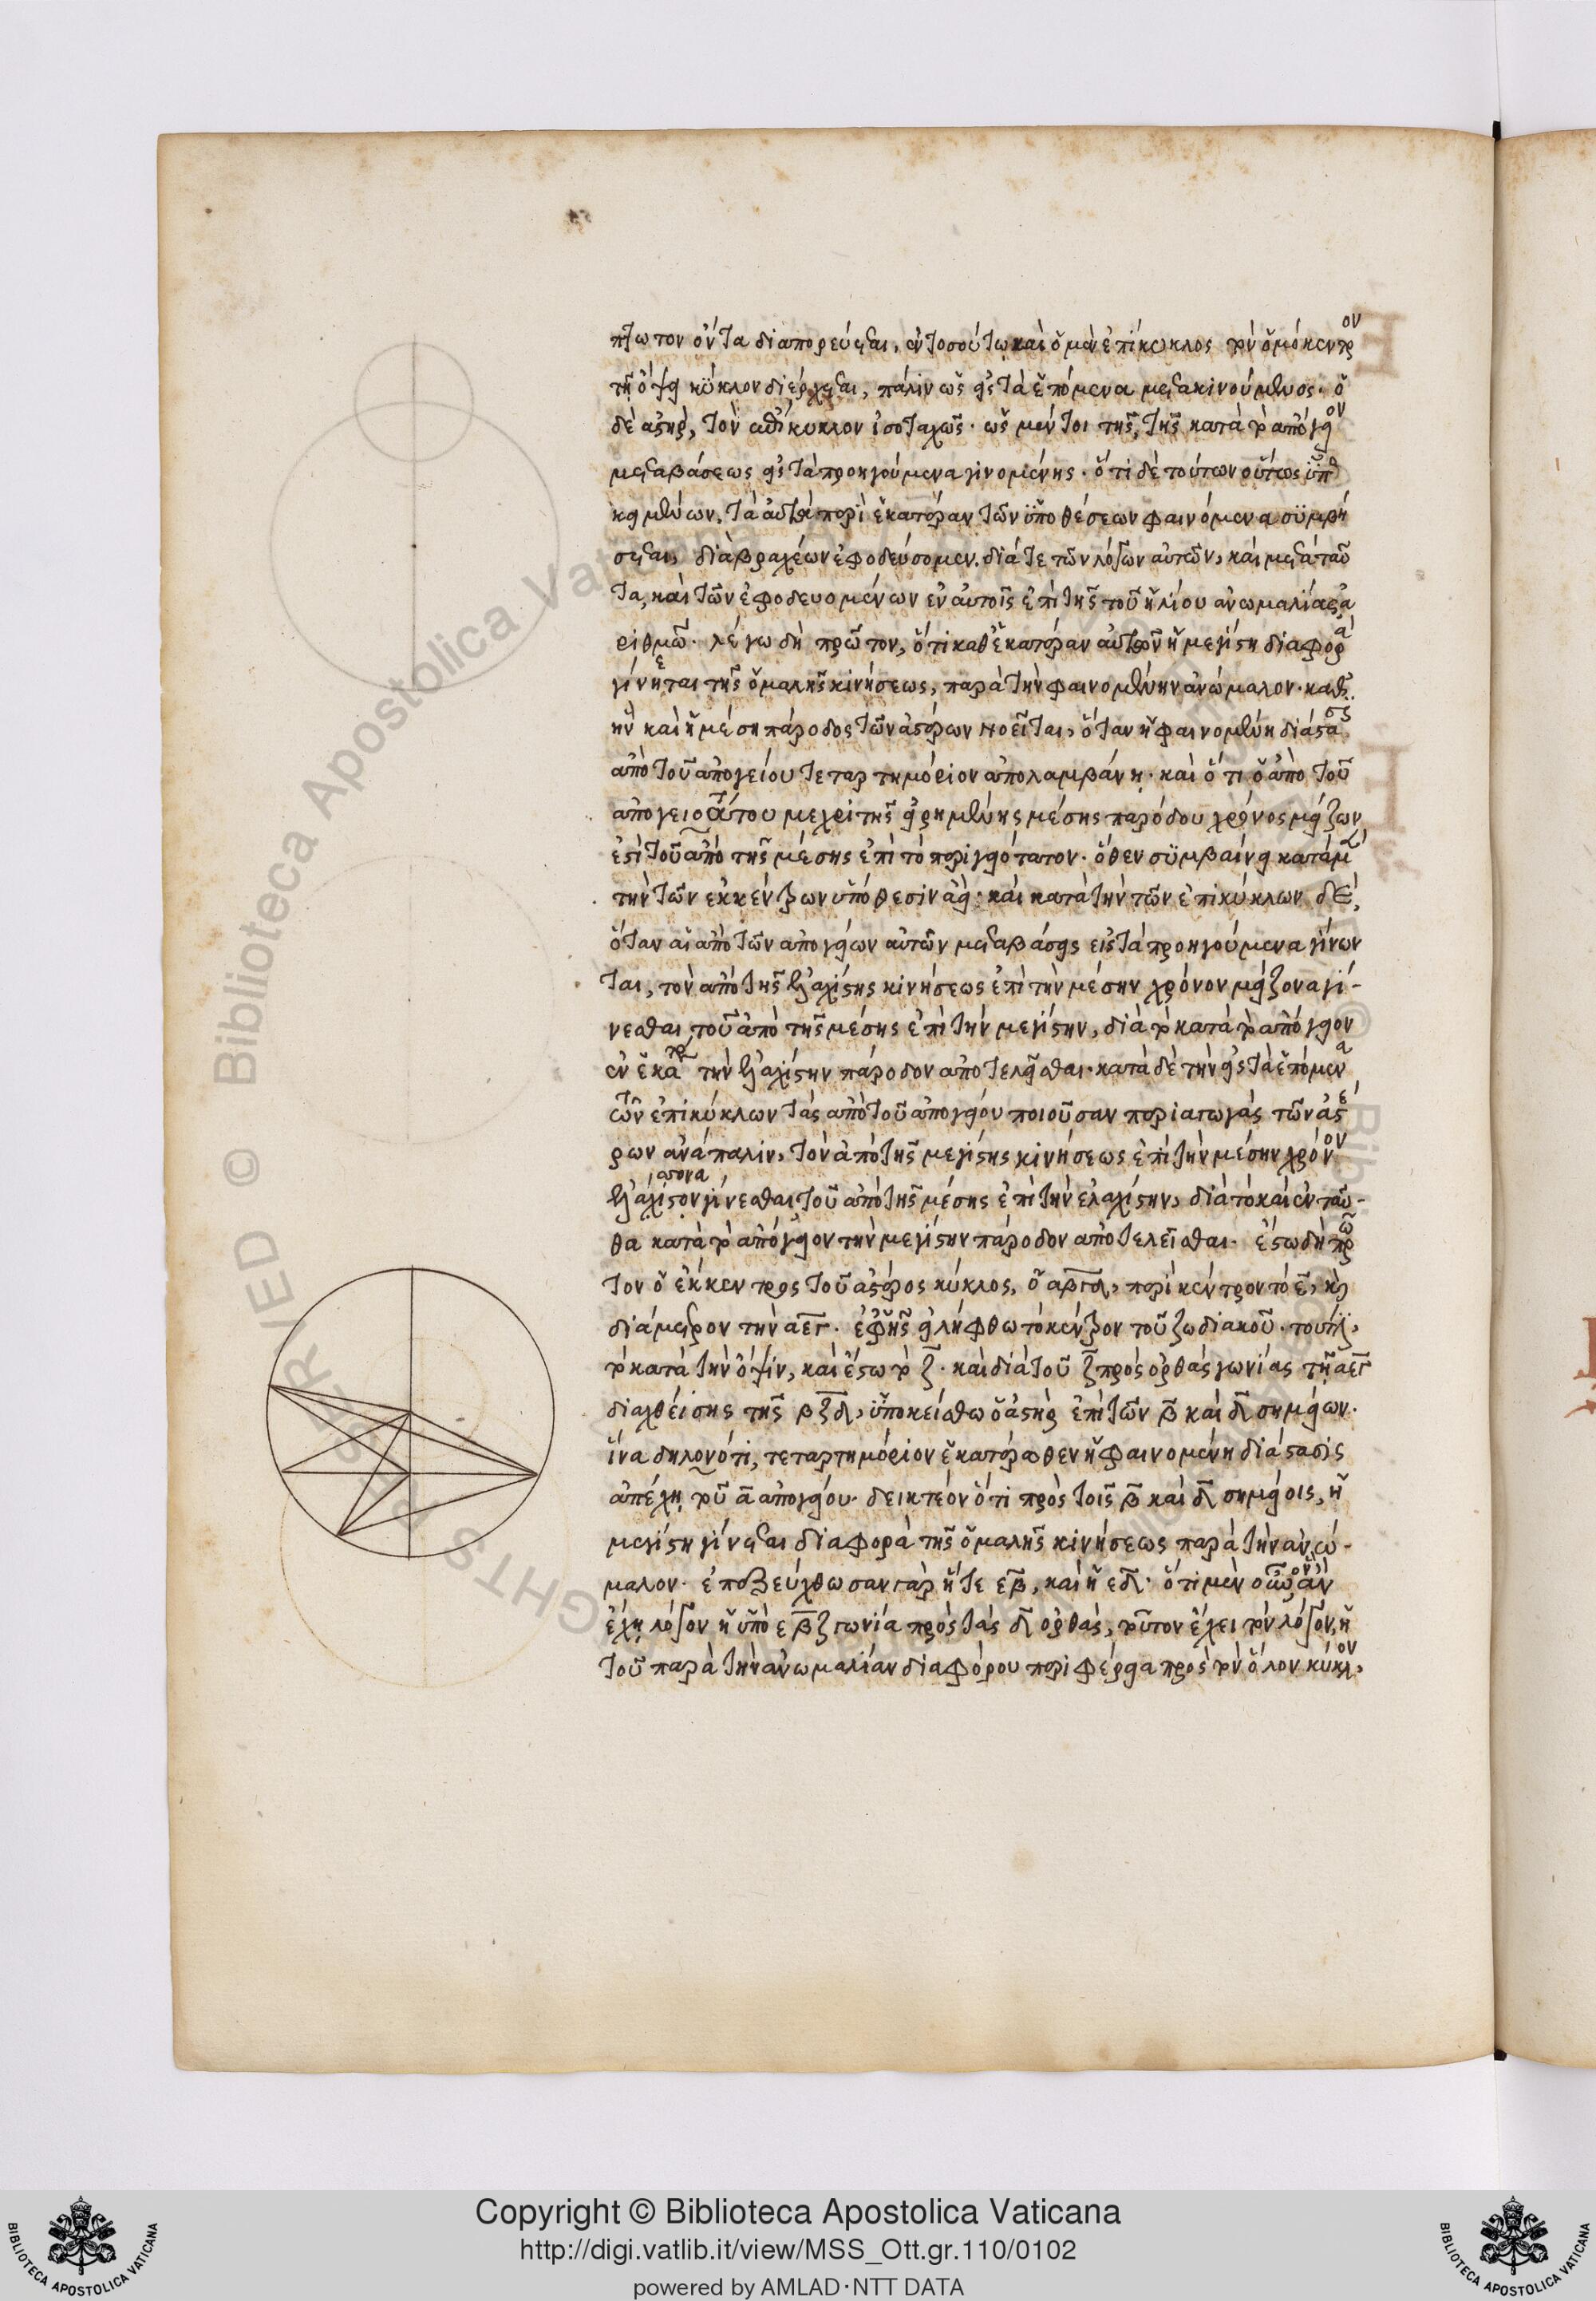 πρῶτον ὄντα διαπορεύεται, ἐν τοσούτω καὶ ὁ μὲν ἐπίκυκλος τὸν ὁμόκεντρον
τῆ ὄψει κύκλον διέρχεται, πάλιν ὡς εἰς τὰ ἑπόμενα μετακινούμενος. ὁ
δὲ ἀστὴρ, τὸν ἐπίκυκλον ἰσοταχῶς. ὡς μέντοι τῆς, τῆς κατὰ τὸ ἀπόγειον
μεταβάσεως εἰς τὰ προηγούμενα γινομένης. ὅτι δὲ τούτων οὕτως ὑπο
κειμένων, τὰ αὐτὰ περὶ ἑκατέραν τῶν ὑποθέσεων φαινόμενα συμβή
σεται, διὰ βραχέων ἐφοδεύσομεν. διά τε τῶν λόγων αὐτῶν, καὶ μετὰ ταῦ
τα, καὶ τῶν ἐφοδευομένων ἐν αὐτοῖς ἐπὶ τῆς τοῦ ἡλίου ἀνωμαλίας ἀ
ριθμῶν. λέγω δὴ πρῶτον, ὅτι καθ' ἑκατέραν αὐτῶν ἡ μεγίστη διαφορὰ
γίνεται τῆς ὁμαλῆς κινήσεως, παρὰ τὴν φαινομένην ἀνώμαλον. καθ'
ἣν καὶ ἡ μέση πάροδος τῶν ἀστέρων νοεῖται, ὅταν ἡ φαινομένη διάστασις
ἀπὸ τοῦ ἀπογείου τεταρτημόριον ἀπολαμβάνη. καὶ ὅτι ὁ ἀπὸ τοῦ
ἀπογειοτάτου μέχρι τῆς εἰρημένης μέσης παρόδου χρόνος μείζων
ἐστὶ τοῦ ἀπὸ τῆς μέσης ἐπὶ τὸ περιγειότατον. ὅθεν συμβαίνει κατὰ μὲν
τὴν τῶν ἐκκέντρων ὑπόθεσιν ἀεὶ. καὶ κατὰ τὴν τῶν ἐπικύκλων δὲ,
ὅταν αἱ ἀπὸ τῶν ἀπογείων αὐτῶν μεταβάσεις εἰς τὰ προηγούμενα γίνων
ται, τὸν ἀπὸ τῆς ἐλαχίστης κινήσεως ἐπὶ τὴν μέσην χρόνον μείζονα γί-
νεσθαι, τοῦ ἀπὸ τῆς μέσης ἐπὶ τὴν μεγίστην, διὰ τὸ κατὰ τὸ ἀπόγειον
ἐν ἑκατέρα τὴν ἐλαχίστην πάροδον ἀποτελεῖσθαι. κατὰ δὲ τὴν εἰς τὰ ἑπόμενα
τῶν ἐπικύκλων τὰς ἀπὸ τοῦ ἀπογείου ποιοῦσαν περιαγωγὰς τῶν ἀστέ
ρων ἀνάπαλιν, τὸν ἀπὸ τῆς μεγίστης κινήσεως ἐπὶ τὴν μέσην χρόνον
ἐλάχιστον γίνεσθαι τοῦ ἀπὸ τῆς μέσης ἐπὶ τὴν ἐλαχίστην, διὰ τὸ καὶ ἐνταῦ-
θα κατὰ τὸ ἀπόγειον τὴν μεγίστην πάροδον ἀποτελεῖσθαι. ἔστω δὴ πρῶ
τον ὁ ἔκκεντρος τοῦ ἀστέρος κύκλος, ὁ αβγδ, περὶ κέντρον τὸ ε, καὶ
διάμετρον τὴν αεγ. ἐφ' ἧς εἰλήφθω τὸ κέντρον τοῦ ζωδιακοῦ. τουτέστι,
τὸ κατὰ τὴν ὄψιν, καὶ ἔστω τὸ ζ. καὶ διὰ τοῦ ζ πρὸς ὀρθὰς γωνίας τῆ αεγ
διαχθείσης τῆς βζδ, ὑποκείσθω ὁ ἀστὴρ ἐπὶ τῶν β καὶ δ σημείων.
ἵνα δηλονότι, τεταρτημόριον ἑκατέρωθεν ἡ φαινομένη διάστασις
ἀπέχη τοῦ α ἀπογείου. δεικτέον ὅτι πρὸς τοῖς β καὶ δ σημείοις, ἡ
μεγίστη γίνεται διαφορὰ τῆς ὁμαλῆς κινήσεως παρὰ τὴν ἀνώ-
μαλον. ἐπεζεύχθωσαν γὰρ ἥ τε εβ, καὶ ἡ εδ. ὅτι μὲν οὖν ὃν ἂν
ἔχη λόγον ἡ ὑπὸ εβζ γωνία πρὸς τὰς δ ὀρθὰς, τοῦτον ἔχει τὸν λόγον, ἡ
τοῦ παρὰ τὴν ἀνωμαλίαν διαφόρου περιφέρεια πρὸς τὸν ὅλον κύκλον,
Copyright © Biblioteca Apostolica Vaticana
http://digi.vatlib.it/view/MSS_Ott.gr.110/0102
powered by AMLAD·NTT DATA